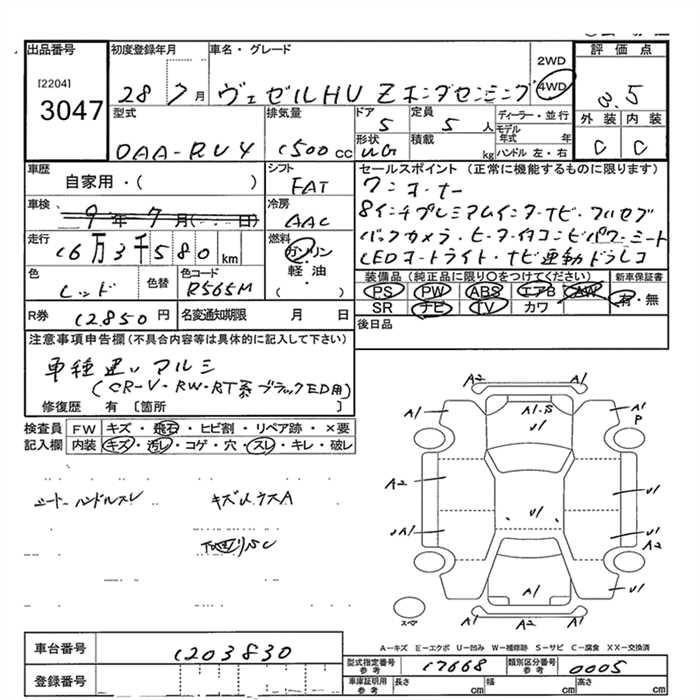 出品番号
[2204]
3047
初度登録年月
28 7 月
車名・グレード
ヴェゼルHV Z ホンダセンシング
2WD
4WD
評価点
3.5
外装 内装
C C
型式
DAA-RU4
排気量
1500 cc
ドア
5
形状
WG
定員
5 人
積載
kg
ディーラー・並行
モデル年式 年
ハンドル 左・右
車歴
自家用・( )
シフト
FAT
車検
9 年 7 月 ( 日)
冷房
AAC
走行
16万3千580 km
燃料
ガソリン
軽油
( )
色
レッド
色替
色コード
R565M
R券 12850 円
名変通知期限 月 日
セールスポイント (正常に機能するものに限ります)
ワンオーナー
8インチプレミアムインターナビ・フルセグ
バックカメラ・ヒーター付コンビパワーシート
LEDオートライト・ナビ連動ドラレコ
装備品 (純正品に限り○をつけてください)
新車保証書
PS PW ABS エアB AW
SR ナビ TV カワ
有・無
後日品
注意事項申告欄 (不具合内容等は具体的に記入して下さい)
車種違いアルミ
(CR-V・RW・RT系ブラックED用)
修復歴 有 [箇所 ]
検査員記入欄
FW キズ・飛石・ヒビ割・リペア跡・×要
内装 キズ・汚レ・コゲ・穴・スレ・キレ・破レ
シートハンドルスレ
A2
A1
A1.S
U1
A1
A1
P
A2
U1
U1
U1
A2
A1
U1
A1 A2 A1
スペア
A-キズ E-エクボ U-凹み W-補修跡 S-サビ C-腐食 XX-交換済
車台番号
1203830
登録番号
型式指定番号 参考
17668
類別区分番号 参考
0005
車庫証明用 参考
長さ cm 幅 cm 高さ cm